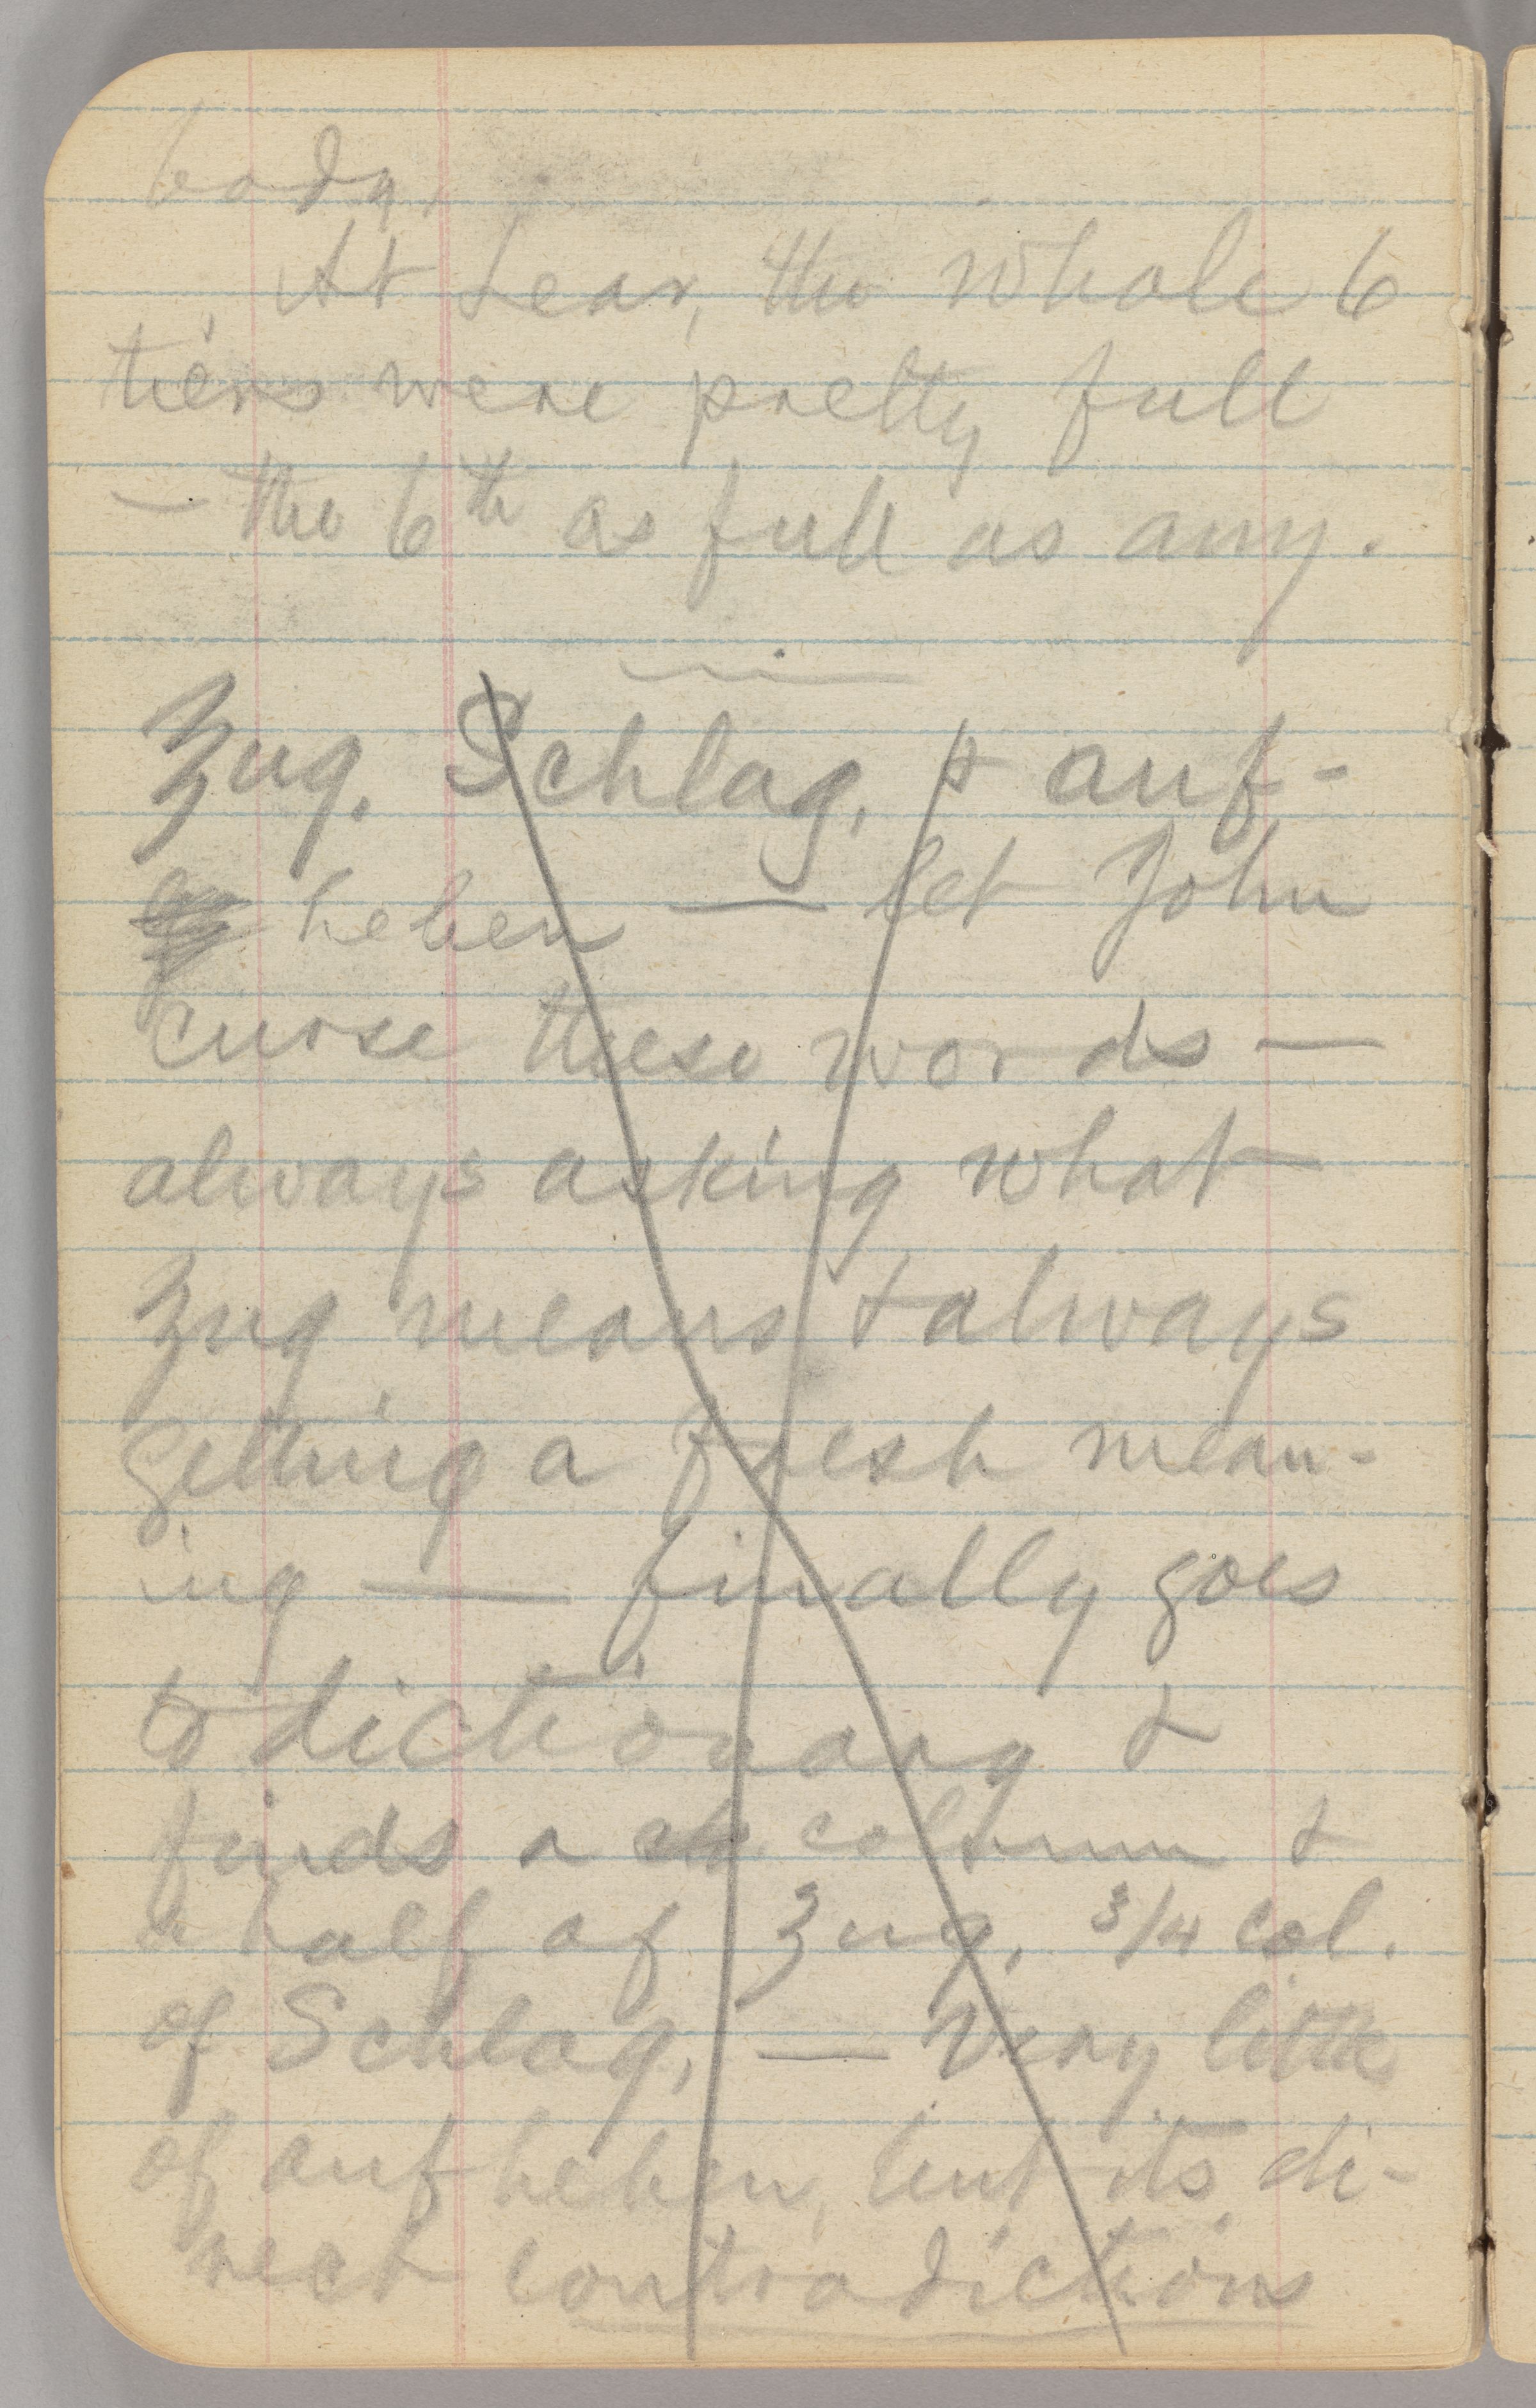 body.
At Lear, the whole 6
tiers were pretty full
— the 6th as full as any.
Zug, Schlag, & auf-
heben — let John
curse these words —
always asking what
Zug means & always
getting a fresh mean-
ing — finally goes
to dictionary &
finds a column &
a half of Zug, 3/4 col.
of Schlag, — Very little
of aufheben, but its di-
rect contradictions